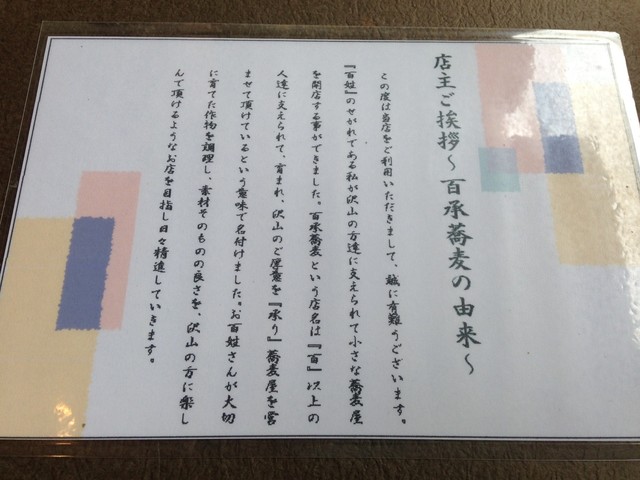 店主ご挨拶～百承蕎麦の由来～
この度は当店をご利用いただきまして、誠に有難うございます。
『百姓』のせがれである私が沢山の方達に支えられて小さな蕎麦屋
を開店する事ができました。百承蕎麦という店名は『百』以上の
人達に支えられて、育まれ、沢山のご厚意を『承り』蕎麦屋を営
ませて頂けているという意味で名付けました。お百姓さんが大切
に育てた作物を調理し、素材そのものの良さを、沢山の方に楽し
んで頂けるようなお店を目指し日々精進していきます。